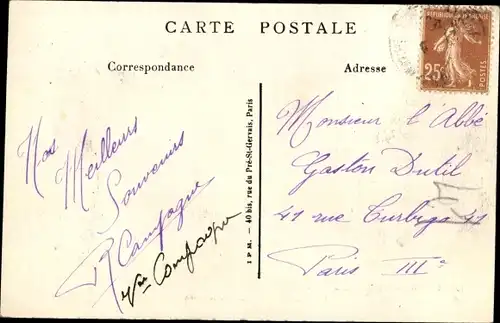 CARTE POSTALE
Correspondance
Adresse
REPUBLIQUE FRANÇAISE
25c
POSTES
Nos
Meilleurs
Souvenirs
R Campagne
Campagne
I P M. — 40 bis, rue du Pré-St-Gervais, Paris
Monsieur l'Abbé
Gaston Dutil
41 rue Turbigo 41
Paris IIIe